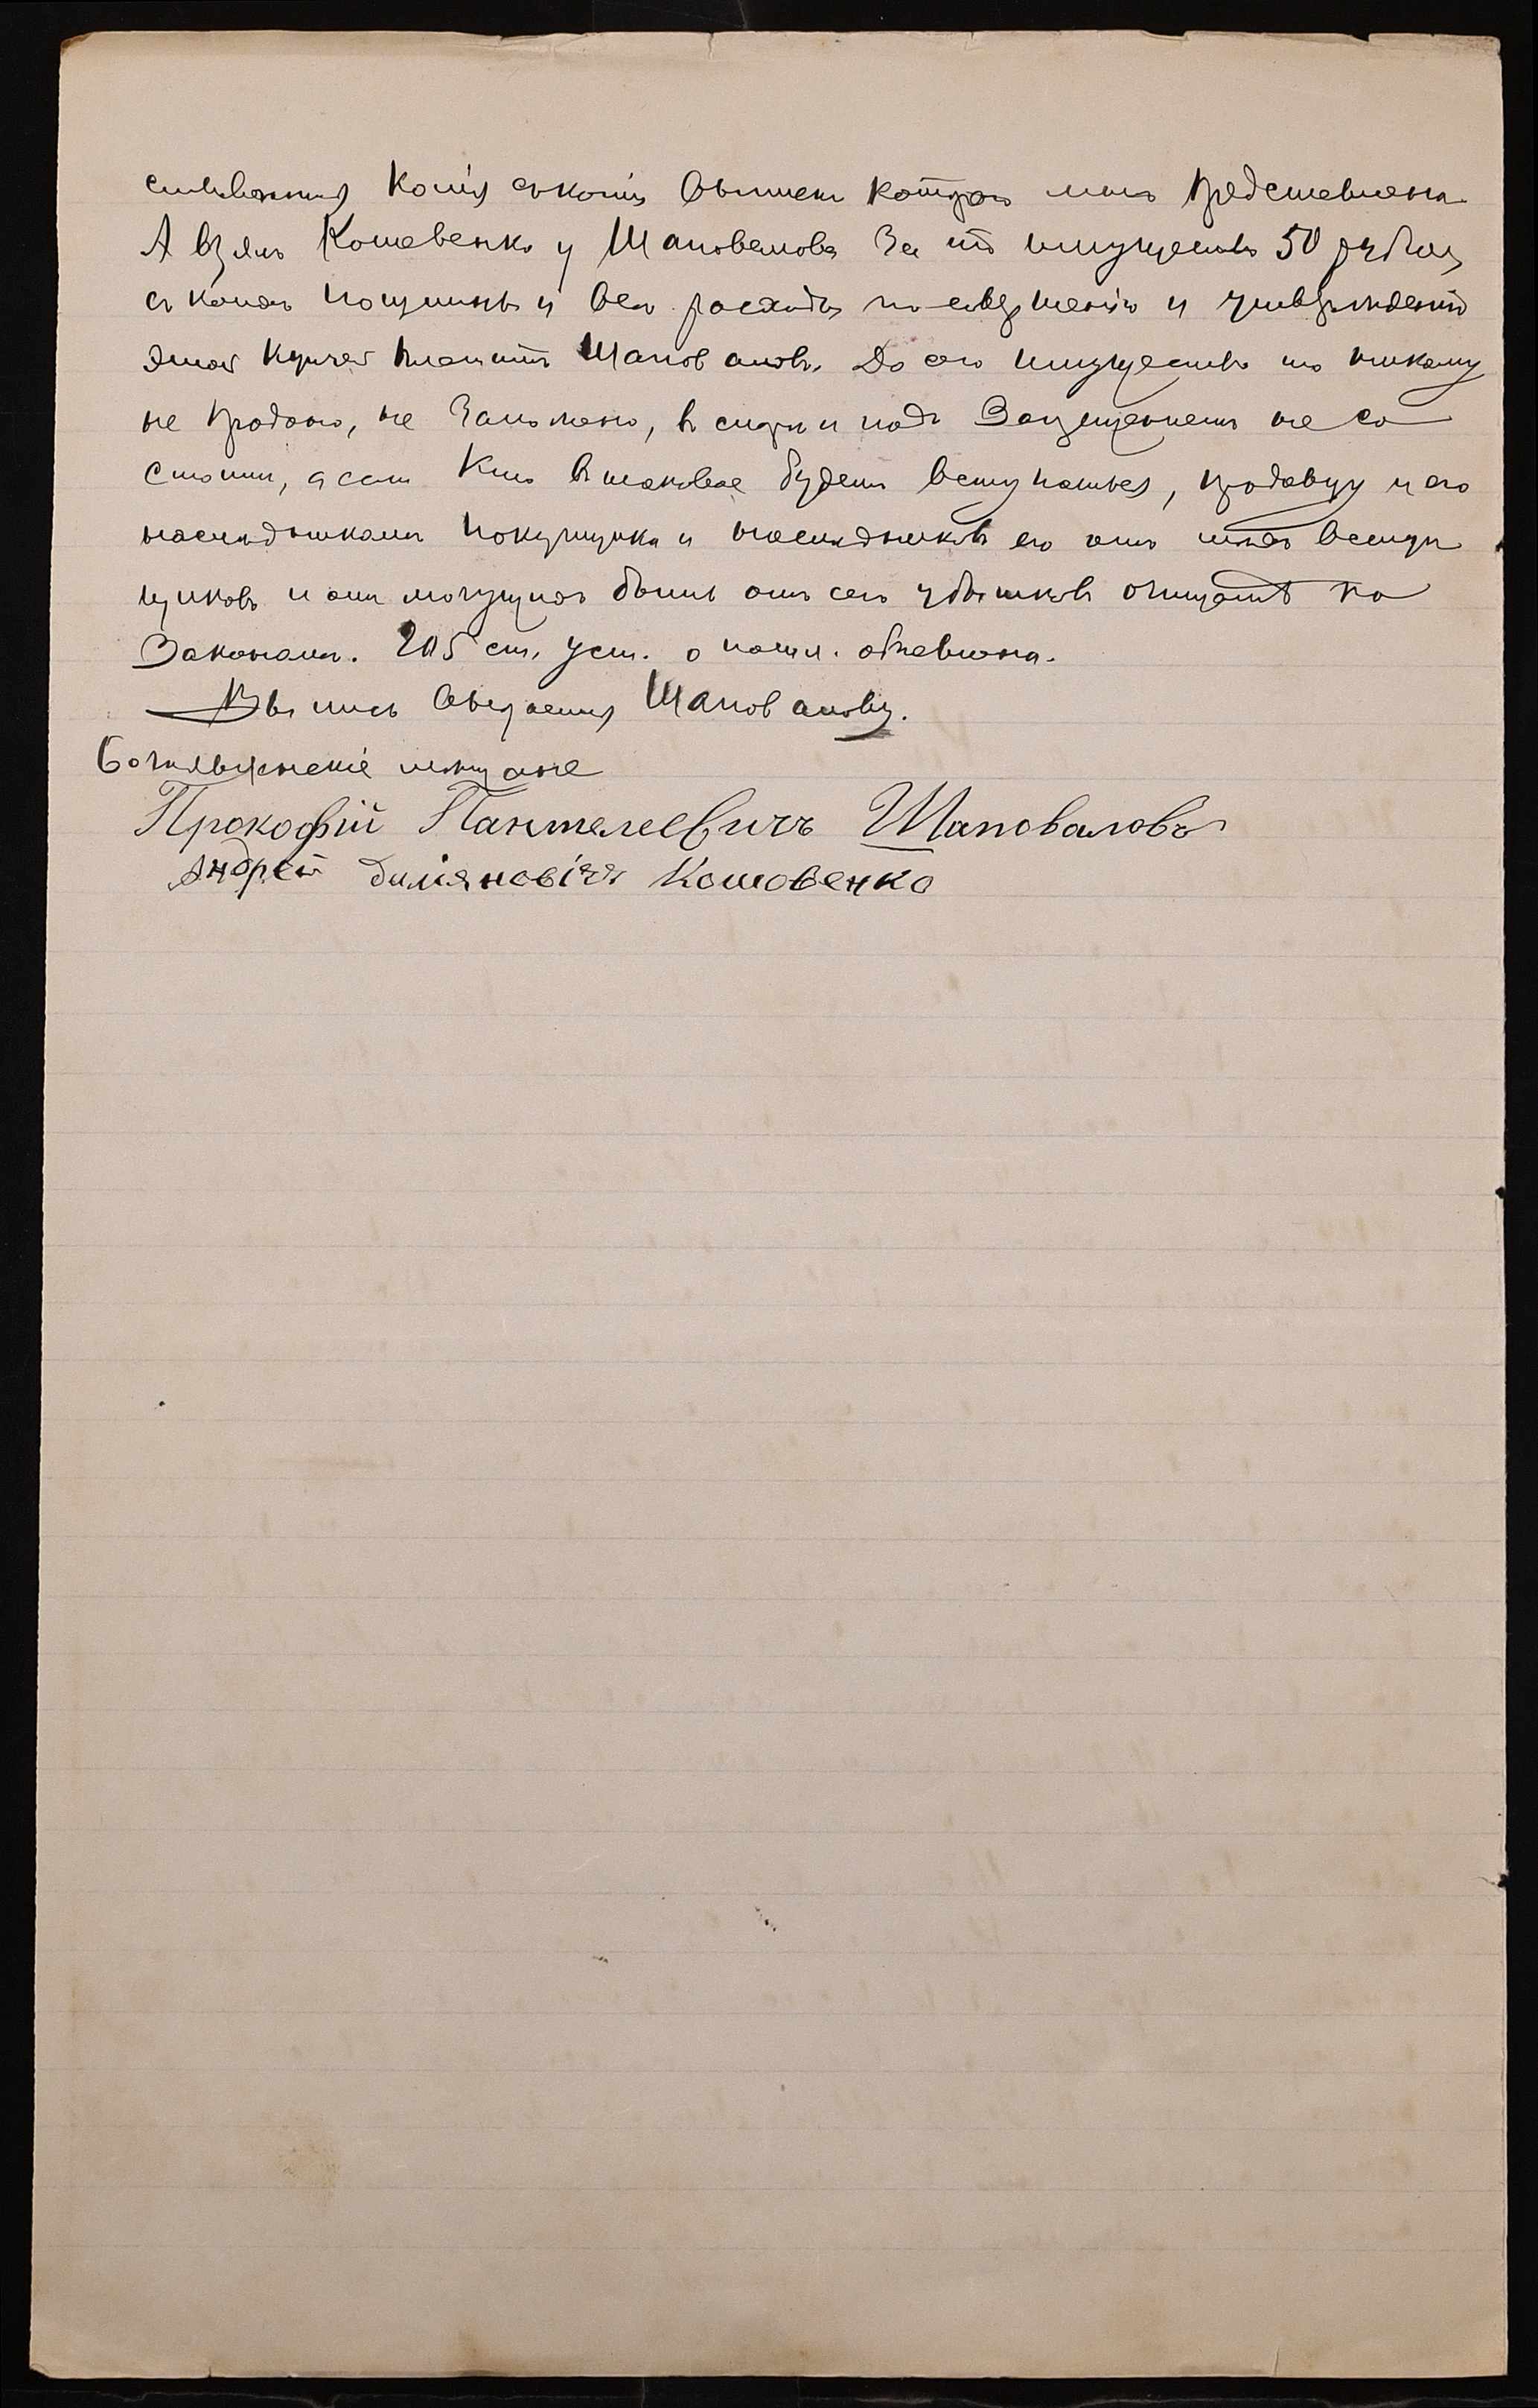 ственная копія съ копіи выписи которой мнѣ представлена.
А взялъ Кошевенко у Шаповалова за то имущество 50 рублей,
съ коихъ пошлины и все расходы по совершенію и утвержденію
этой купчей платитъ Шаповаловъ. До сего имущество то никому
не продано, не заложено, въ спорѣ и подъ запрещеніемъ не со
стоитъ, а если кто въ таковое будетъ вступаться, продавцу и его
наслѣдникамъ покупщика и наслѣдниковъ его отъ тѣхъ вступ
щиковъ и отъ могущихъ быть отъ сего убытковъ очищать по
законамъ. 205 ст. уст. о пошл. объявлена.
Выпись выдается Шаповалову.
мѣщане
Прокофій Пантелеевичъ Шаповаловъ
Андрей Димяновічъ Кошовенко